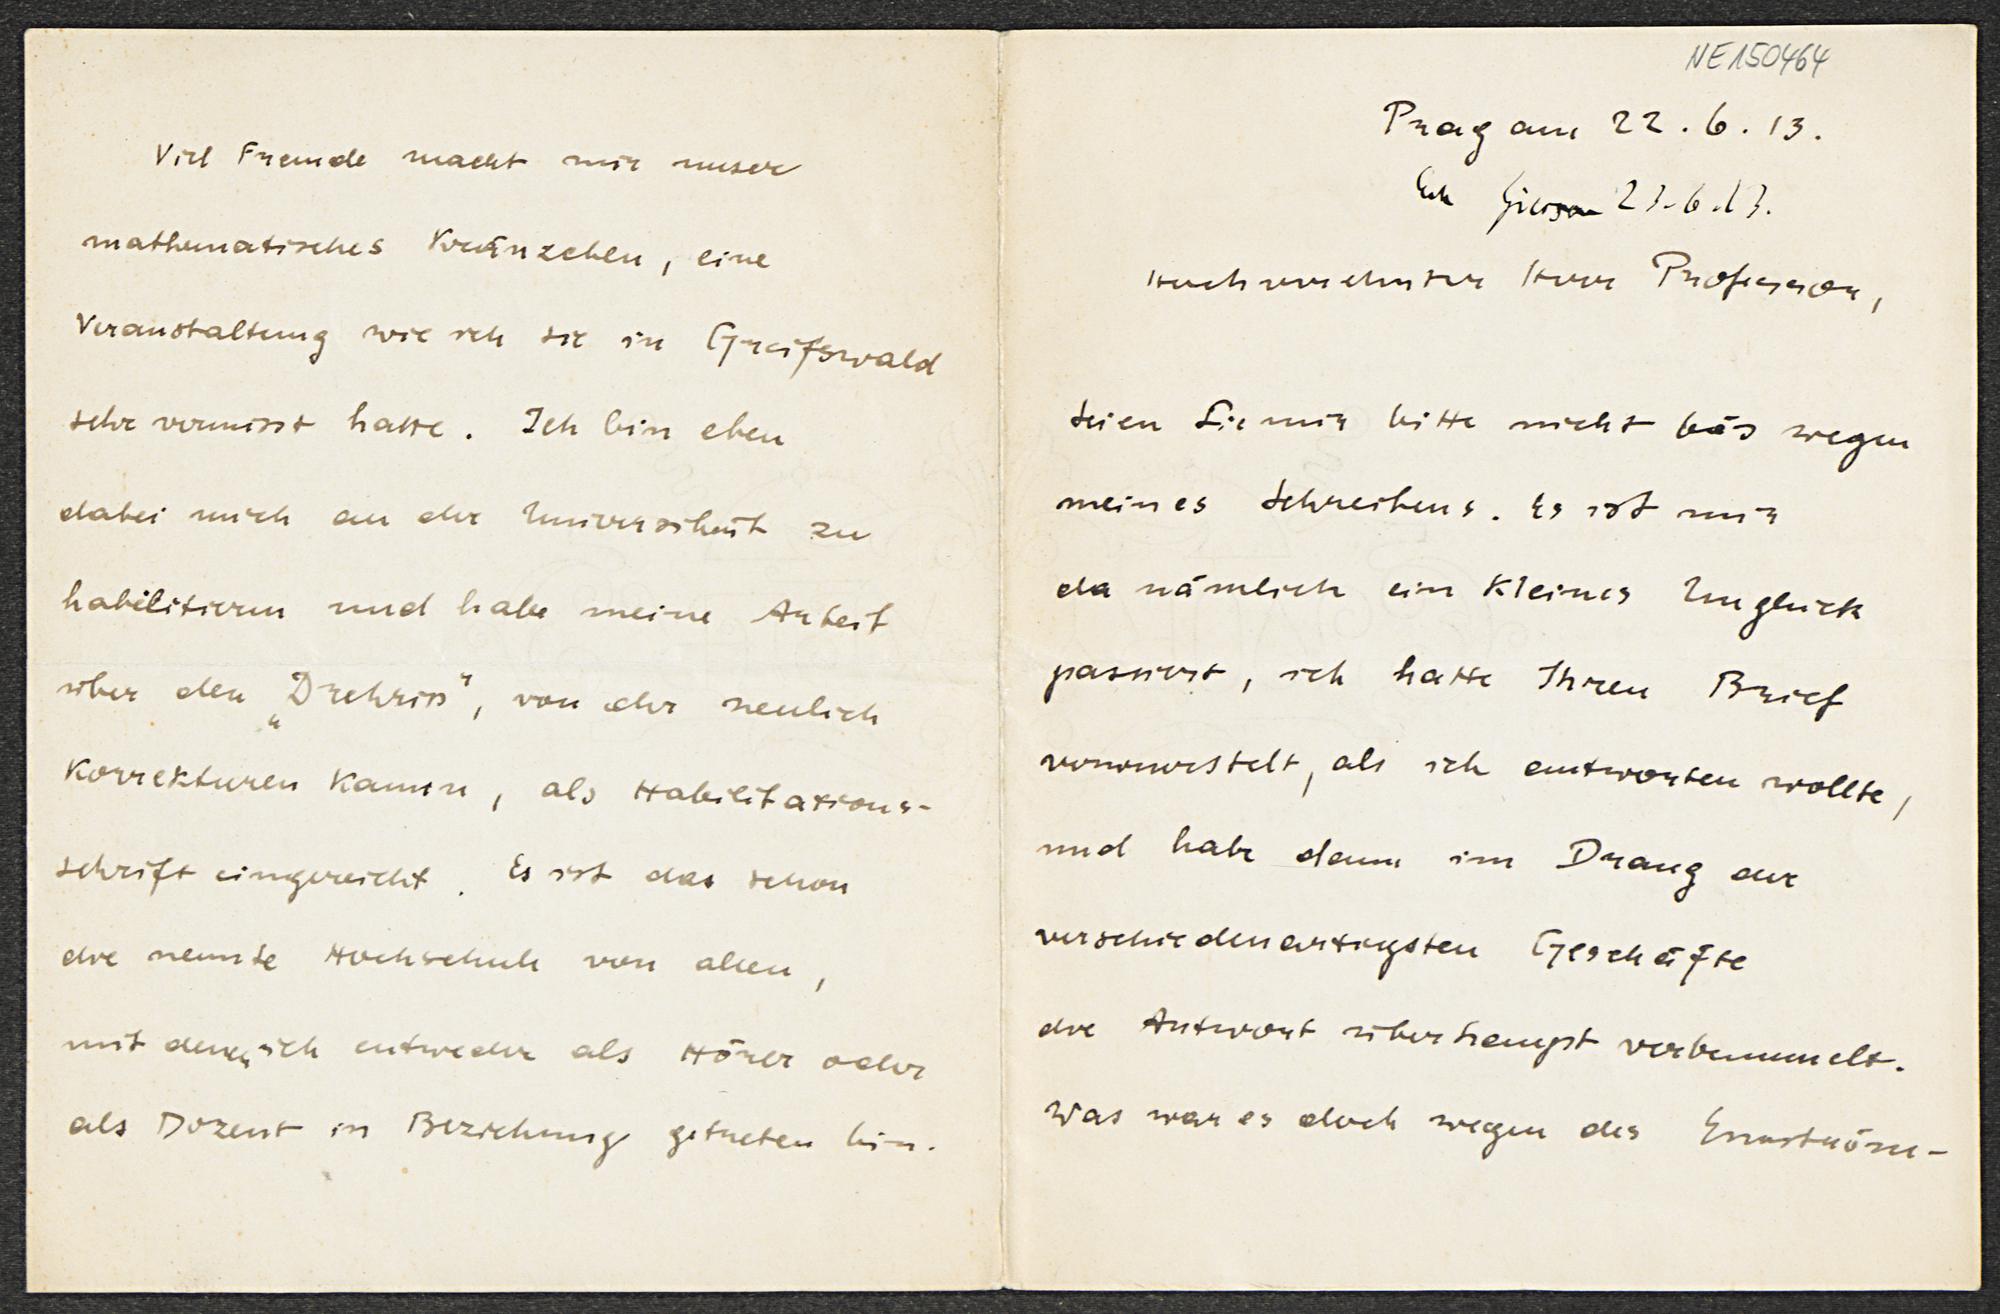 NE150464
Prag am 22.6.13.
23.6.13.
Hochverehrter Herr Professor,
seien Sie mir bitte nicht bös wegen
meines Schreibens. Es ist mir
da nämlich ein kleines Unglück
passiert, ich hatte Ihren Brief
verwurstelt, als ich antworten wollte,
und habe dann im Drang der
verschiedenartigsten Geschäfte
die Antwort überhaupt verbummelt.
Was war es doch wegen des
Viel Freude macht mir unser
mathematisches Kränzchen, eine
Veranstaltung wie ich sie in Greifswald
sehr vermisst hatte. Ich bin eben
dabei mich an der Universität zu
habilitieren und habe meine Arbeit
über den „Drehriss", von der neulich
Korrekturen kamen, als Habilitations-
schrift eingereicht. Es ist das schon
die neunte Hochschule von allen,
mit denen ich entweder als Hörer oder
als Dozent in Beziehung getreten bin.